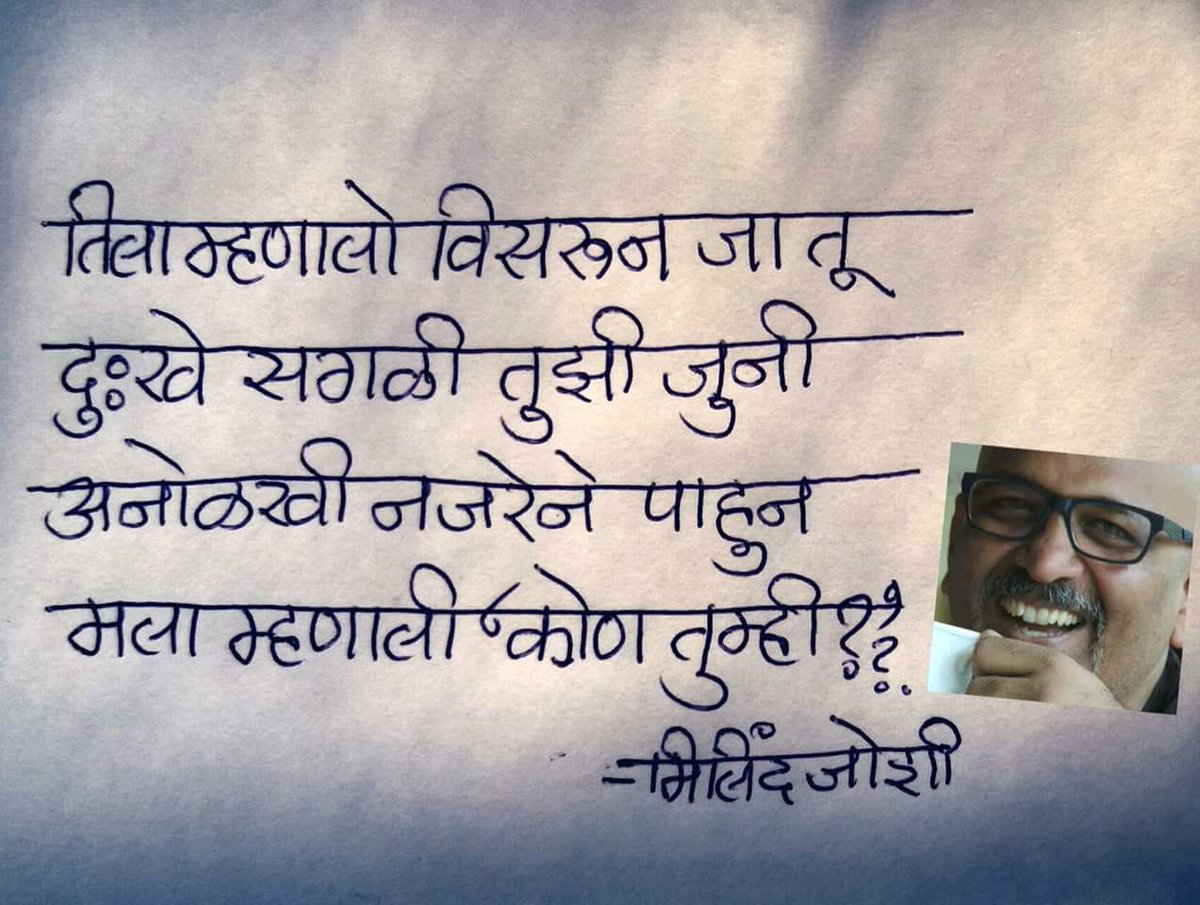 तिला म्हणालो विसरून जा तू
दुःखे सगळी तुझी जुनी
अनोळखी नजरेने पाहुन
मला म्हणाली 'कोण तुम्ही??
-मिलिंद जोशी